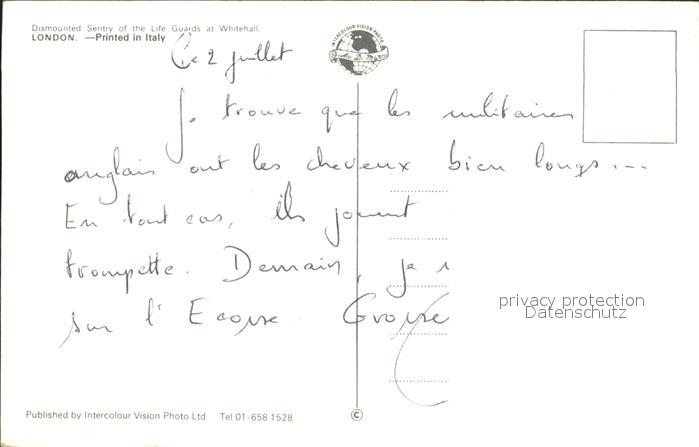 Dismounted Sentry of the Life Guards at Whitehall.
LONDON. —Printed in Italy
INTERCOLOUR VISION PHOTO
Ce 2 juillet
Je trouve que les militaires
anglais ont les cheveux bien longs ...
En tout cas, ils jouent
trompette. Demain, je
sur l'Ecosse. Grosse
privacy protection
Datenschutz
Published by Intercolour Vision Photo Ltd Tel 01-658 1528
©